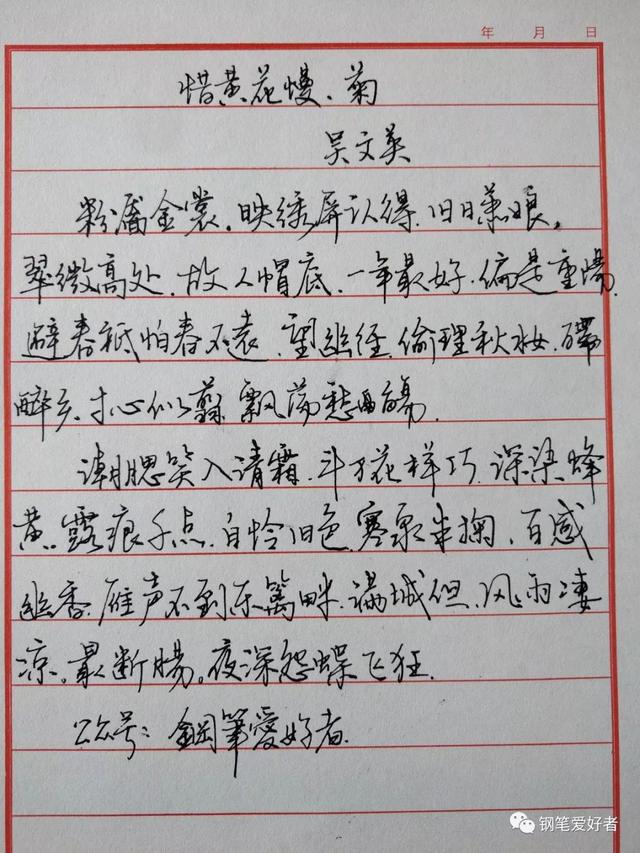 年 月 日
惜黄花慢、菊
吴文英
粉靥金裳。映绣屏认得、旧日萧娘。
翠微高处、故人帽底、一年最好、偏是重阳。
避春祗怕春不远、望幽径、偷理秋妆、殢
醉乡、寸心似翦、飘荡愁觞。
潮腮笑入清霜、斗万花样巧、深染蜂
黄。露痕千点、自怜旧色、寒泉半掬、百感
幽香、雁声不到东篱畔、满城但、风雨凄
凉。最断肠。夜深怨蝶飞狂、
公众号：鋼筆愛好者.
钢笔爱好者